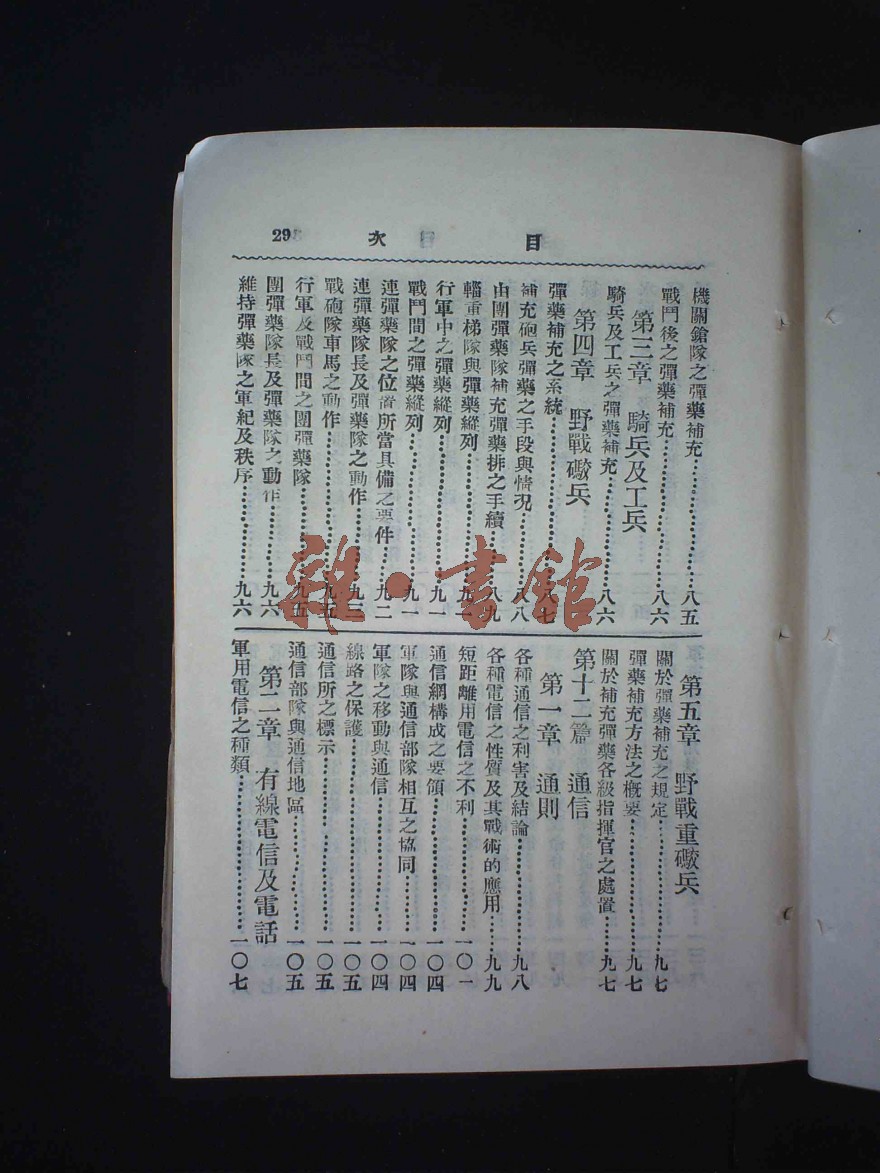 目次
29
機關鎗隊之彈藥補充……八五
戰鬥後之彈藥補充……八六
第三章 騎兵及工兵
騎兵及工兵之彈藥補充……八六
第四章 野戰礮兵
彈藥補充之系統……八七
補充砲兵彈藥之手段與情況……八八
由團彈藥隊補充彈藥排之手續……八九
輜重梯隊與彈藥縱列……九一
行軍中之彈藥縱列……九一
戰鬥間之彈藥縱列……九一
連彈藥隊之位置所當具備之要件……九二
連彈藥隊長及彈藥隊之動作……九三
戰砲隊車馬之動作……九五
行軍及戰鬥間之團彈藥隊……九五
團彈藥隊長及彈藥隊之動作……九六
維持彈藥隊之軍紀及秩序……九六
第五章 野戰重礮兵
關於彈藥補充之規定……九七
彈藥補充方法之概要……九七
關於補充彈藥各級指揮官之處置……九七
第十二篇 通信
第一章 通則
各種通信之利害及結論……九八
各種電信之性質及其戰術的應用……九九
短距離用電信之不利……一〇一
通信網構成之要領……一〇四
軍隊與通信部隊相互之協同……一〇四
軍隊之移動與通信……一〇四
線路之保護……一〇五
通信所之標示……一〇五
通信部隊與通信地區……一〇五
第二章 有線電信及電話
軍用電信之種類……一〇七
雜·書館